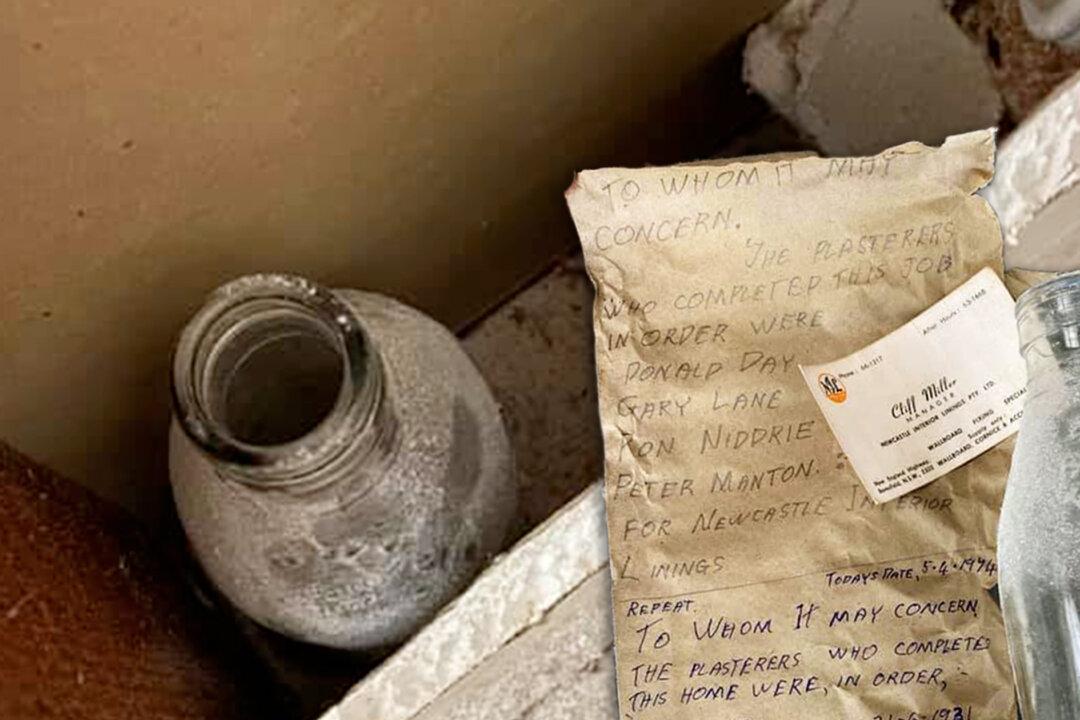 TO WHOM IT MAY
CONCERN.
THE PLASTERERS
WHO COMPLETED THIS JOB
IN ORDER WERE
DONALD DAY
GARY LANE
RON NIDDRIE
PETER MANTON.
FOR NEWCASTLE INTERIOR
LININGS
TODAYS DATE, 5.4.1974
REPEAT.
TO WHOM IT MAY CONCERN
THE PLASTERERS WHO COMPLETED
THIS HOME WERE, IN ORDER,
After Hours:
Phone: 66-1217
Cliff Miller
MANAGER
NEWCASTLE INTERIOR LININGS PTY. LTD.
WALLBOARD FIXING
Supply only:
WALLBOARD, CORNICE &
New England Highway,
N.S.W., 2322